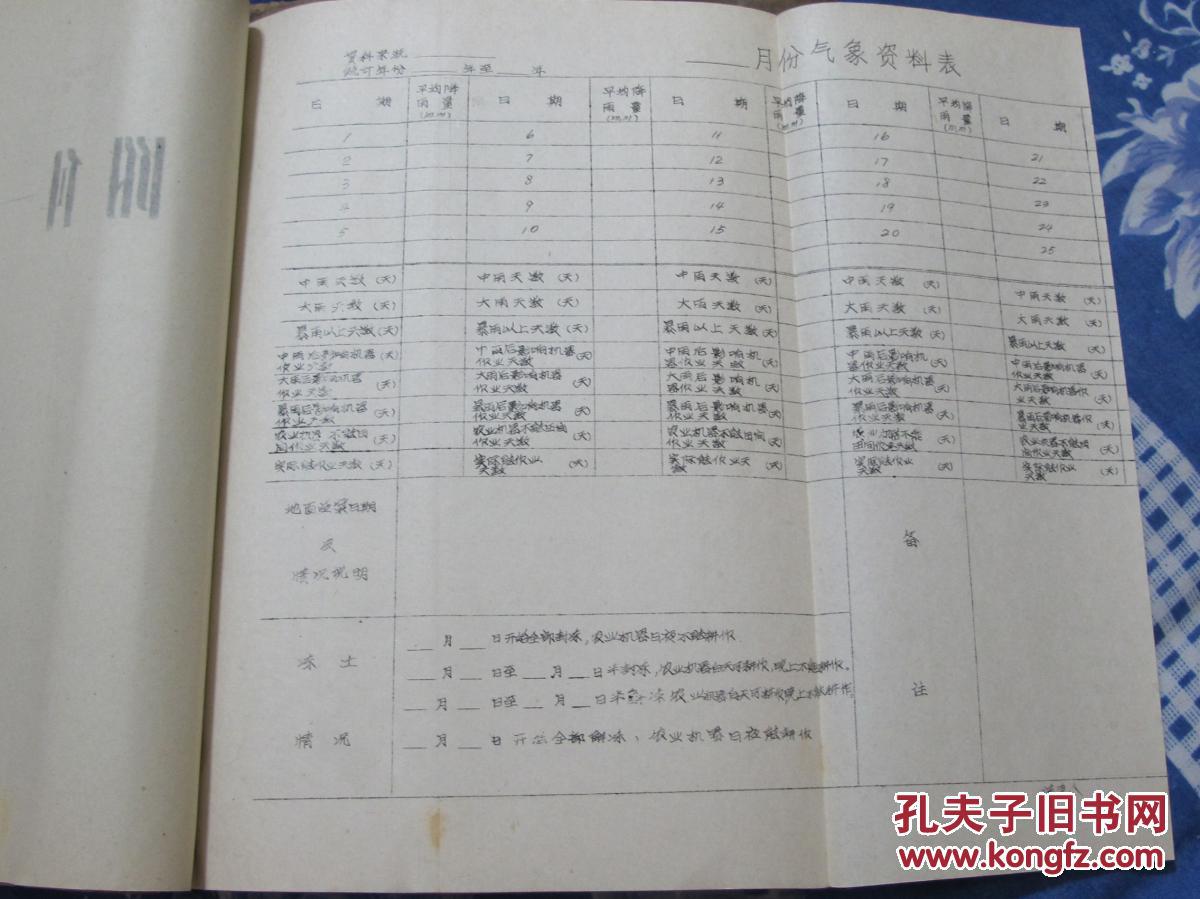 ____月份气象资料表
资料来源____
统计年份____年至____年
日期 平均降雨量(mm) 日期 平均降雨量(mm) 日期 平均降雨量(mm) 日期 平均降雨量(mm) 日期
1 6 11 16 21
2 7 12 17 22
3 8 13 18 23
4 9 14 19 24
5 10 15 20 25
中雨天数(天) 中雨天数(天) 中雨天数(天) 中雨天数(天) 中雨天数(天)
大雨天数(天) 大雨天数(天) 大雨天数(天) 大雨天数(天) 大雨天数(天)
暴雨以上天数(天) 暴雨以上天数(天) 暴雨以上天数(天) 暴雨以上天数(天) 暴雨以上天数(天)
中雨后影响机器作业天数(天) 中雨后影响机器作业天数(天) 中雨后影响机器作业天数(天) 中雨后影响机器作业天数(天) 中雨后影响机器作业天数(天)
大雨后影响机器作业天数(天) 大雨后影响机器作业天数(天) 大雨后影响机器作业天数(天) 大雨后影响机器作业天数(天) 大雨后影响机器作业天数(天)
暴雨后影响机器作业天数(天) 暴雨后影响机器作业天数(天) 暴雨后影响机器作业天数(天) 暴雨后影响机器作业天数(天) 暴雨后影响机器作业天数(天)
农业机器不能田间作业天数(天) 农业机器不能田间作业天数(天) 农业机器不能田间作业天数(天) 农业机器不能田间作业天数(天) 农业机器不能田间作业天数(天)
实际能作业天数(天) 实际能作业天数(天) 实际能作业天数(天) 实际能作业天数(天) 实际能作业天数(天)
地面 日期
及
情况说明
备
注
冻土
情况
__月__日开始全部封冻,农业机器日夜不能耕作
__月__日至__月__日半封冻,农业机器白天可耕作,晚上不能耕作。
__月__日至__月__日半解冻农业机器白天可耕作晚上不能耕作。
__月__日开始全部解冻,农业机器日夜能耕作
孔夫子旧书网
www.kongfz.com